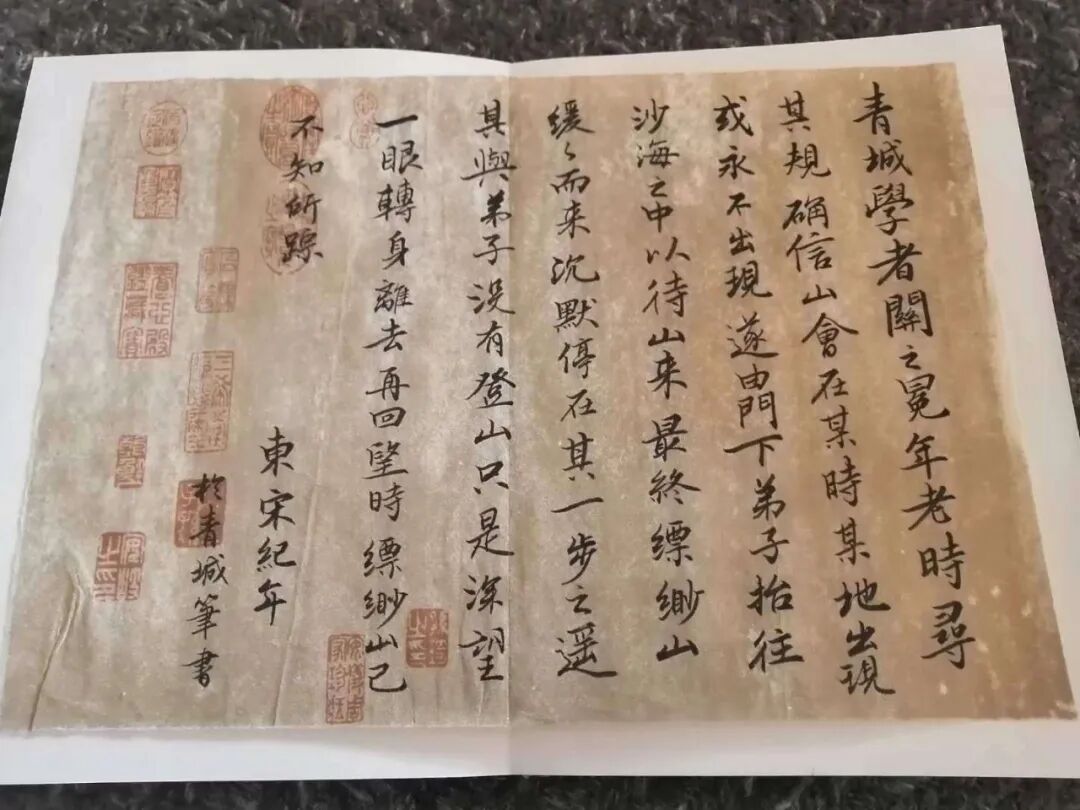 青城學者關之冕年老時尋
其規确信山會在某時某地出現
或永不出現遂由門下弟子抬往
沙海之中以待山来最終縹緲山
缓〻而来沉默停在其一步之遥
其與弟子没有登山只是深望
一眼轉身離去再回望時縹緲山已
不知所踪
東宋紀年
於青城筆書